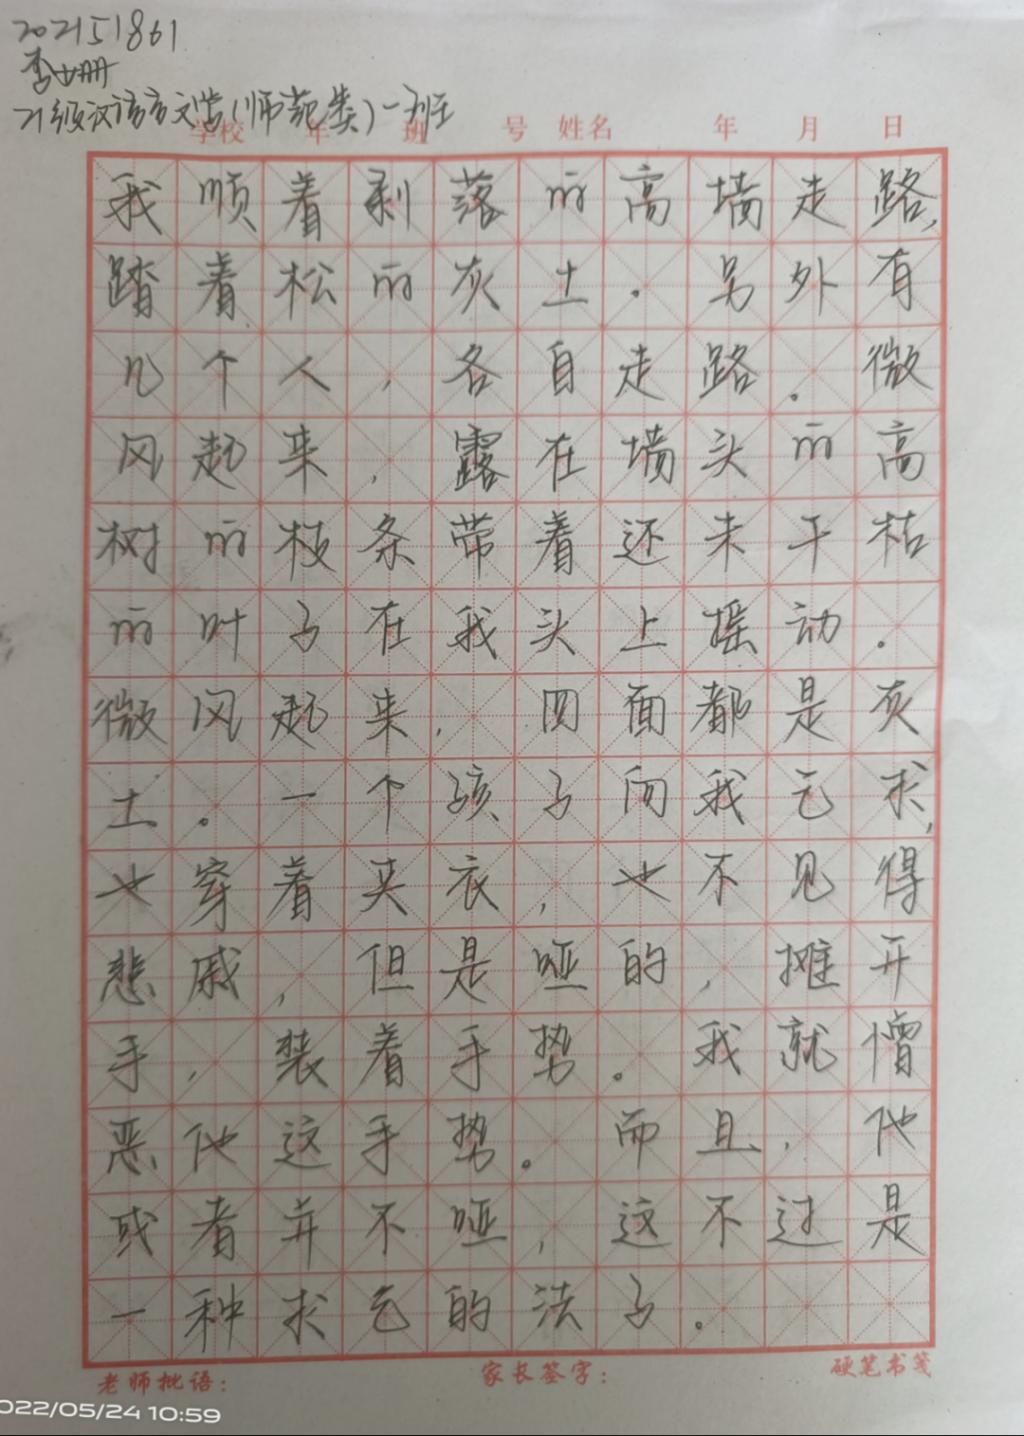 202151861
李册
21级汉语言文学(师范类)一班
学校 年 班 号 姓名 年 月 日
我顺着剥落的高墙走路,
踏着松的灰土。另外有
几个人,各自走路。微
风起来,露在墙头的高
树的枝条带着还未干枯
的叶子在我头上摇动。
微风起来,四面都是灰
土。一个孩子向我乞求,
也穿着夹衣,也不见得
悲戚,但是哑的,摊开
手,装着手势。我就憎
恶他这手势。而且,他
或者并不哑,这不过是
一种求乞的法子。
老师批语: 家长签字: 硬笔书笺
2022/05/24 10:59